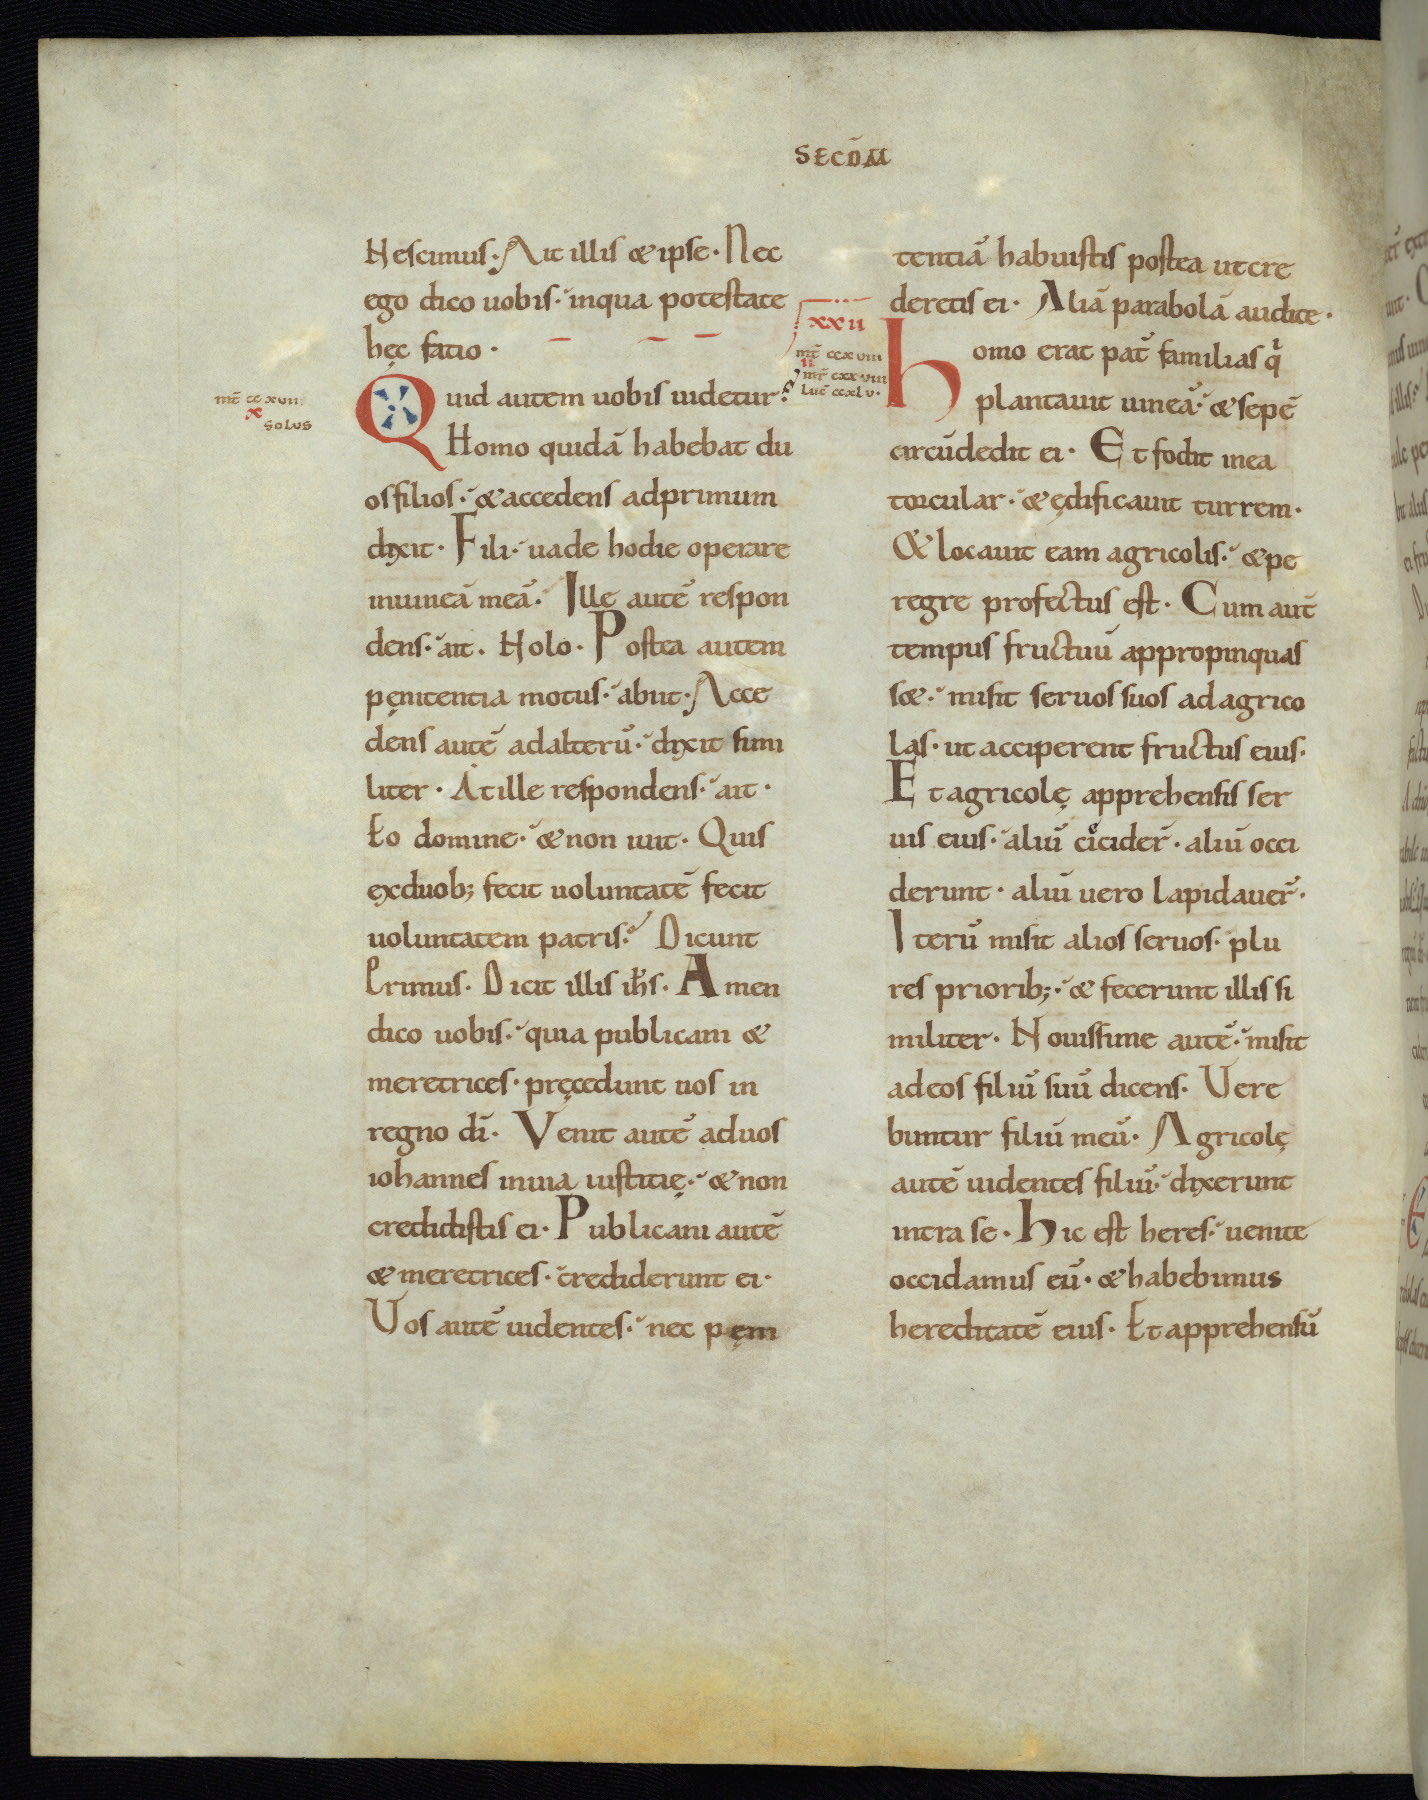 SECD̄M
Nescimus. Ait illis & ipse. Nec
ego dico uobis. inqua potestate
hęc fatio.
mt̄ ccxuii
x
solus
Quid autem uobis uidetur?
Homo quidā habebat du
os filios. & accedens adprimum
dixit. Fili. uade hodie operare
inuineā meā. Ille autē respon
dens. ait. Nolo. Postea autem
pęnitentia motus. abiit. Acce
dens autē adalterū. dixit simi
liter. At ille respondens. ait.
Eo domine. & non iuit. Quis
exduob; fecit uoluntatē fecit
uoluntatem patris? Dicunt
Primus. Dicit illis ih̄s. Amen
dico uobis. quia publicani &
meretrices. pręcedunt uos in
regno dī. Venit autē aduos
iohannes inuia iustitię. & non
credidistis ei. Publicani autē
& meretrices. crediderunt ei.
Vos autē uidentes. nec pęni
tentiā habuistis postea utcre
deretis ei. Aliā parabolā audite.
xxii
mt̄ ccxuiii
ii
mr̄ cxxuiii
luc̄ ccxlu.
homo erat pat̄ familias qi
plantauit uineā. & sepē
circūdedit ei. Et fodit inea
torcular. & ędificauit turrem.
& locauit eam agricolis. & pe
regre profectus est. Cum aut̄
tempus fructuū appropinquas
s&. misit seruos suos ad agrico
las. ut acciperent fructus eius.
Et agricolę apprehensis ser
uis eius. aliū cęcider̄. aliū occi
derunt. aliū uero lapidauer̄.
Iterū misit alios seruos. plu
res priorib;. & fecerunt illis si
militer. Nouissime autē. misit
adeos filiū suū dicens. Vere
buntur filiū meū. Agricolę
autē uidentes filiū. dixerunt
intra se. hic est heres. uenite
occidamus eū. & habebimus
hereditatē eius. Et apprehensū